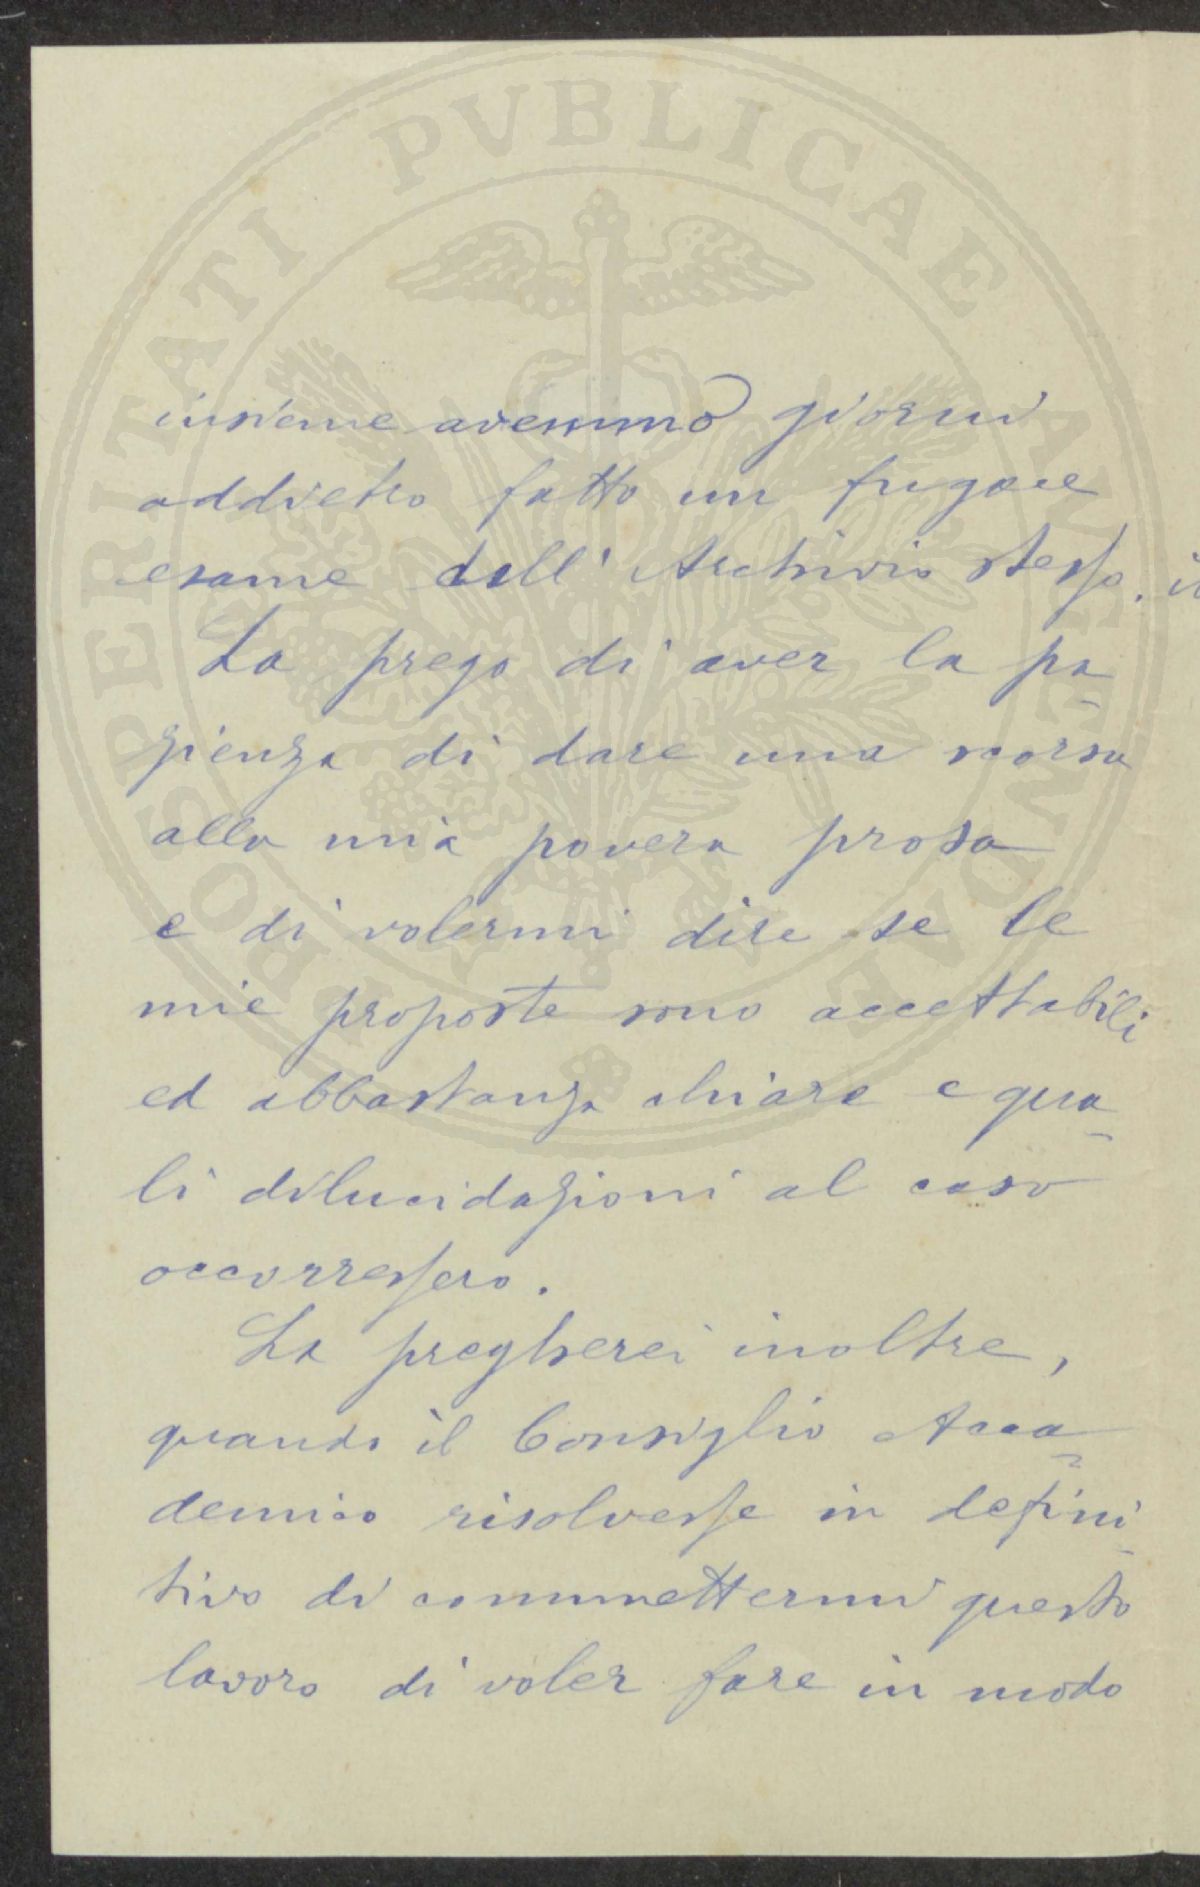 insieme avemmo giorni
addietro fatto un fugace
esame dell' Archivio stesso.
La prego di aver la pa-
zienza di dare una scorsa
alla mia povera prosa
e di volermi dire se le
mie proposte sono accettabili
ed abbastanza chiare e qua-
li dilucidazioni al caso
occorressero.
La pregherei inoltre,
quando il Consiglio Acca-
demico risolvesse in defini-
tivo di commettermi questo
lavoro di voler fare in modo
PROSPERITATI PVBLICAE